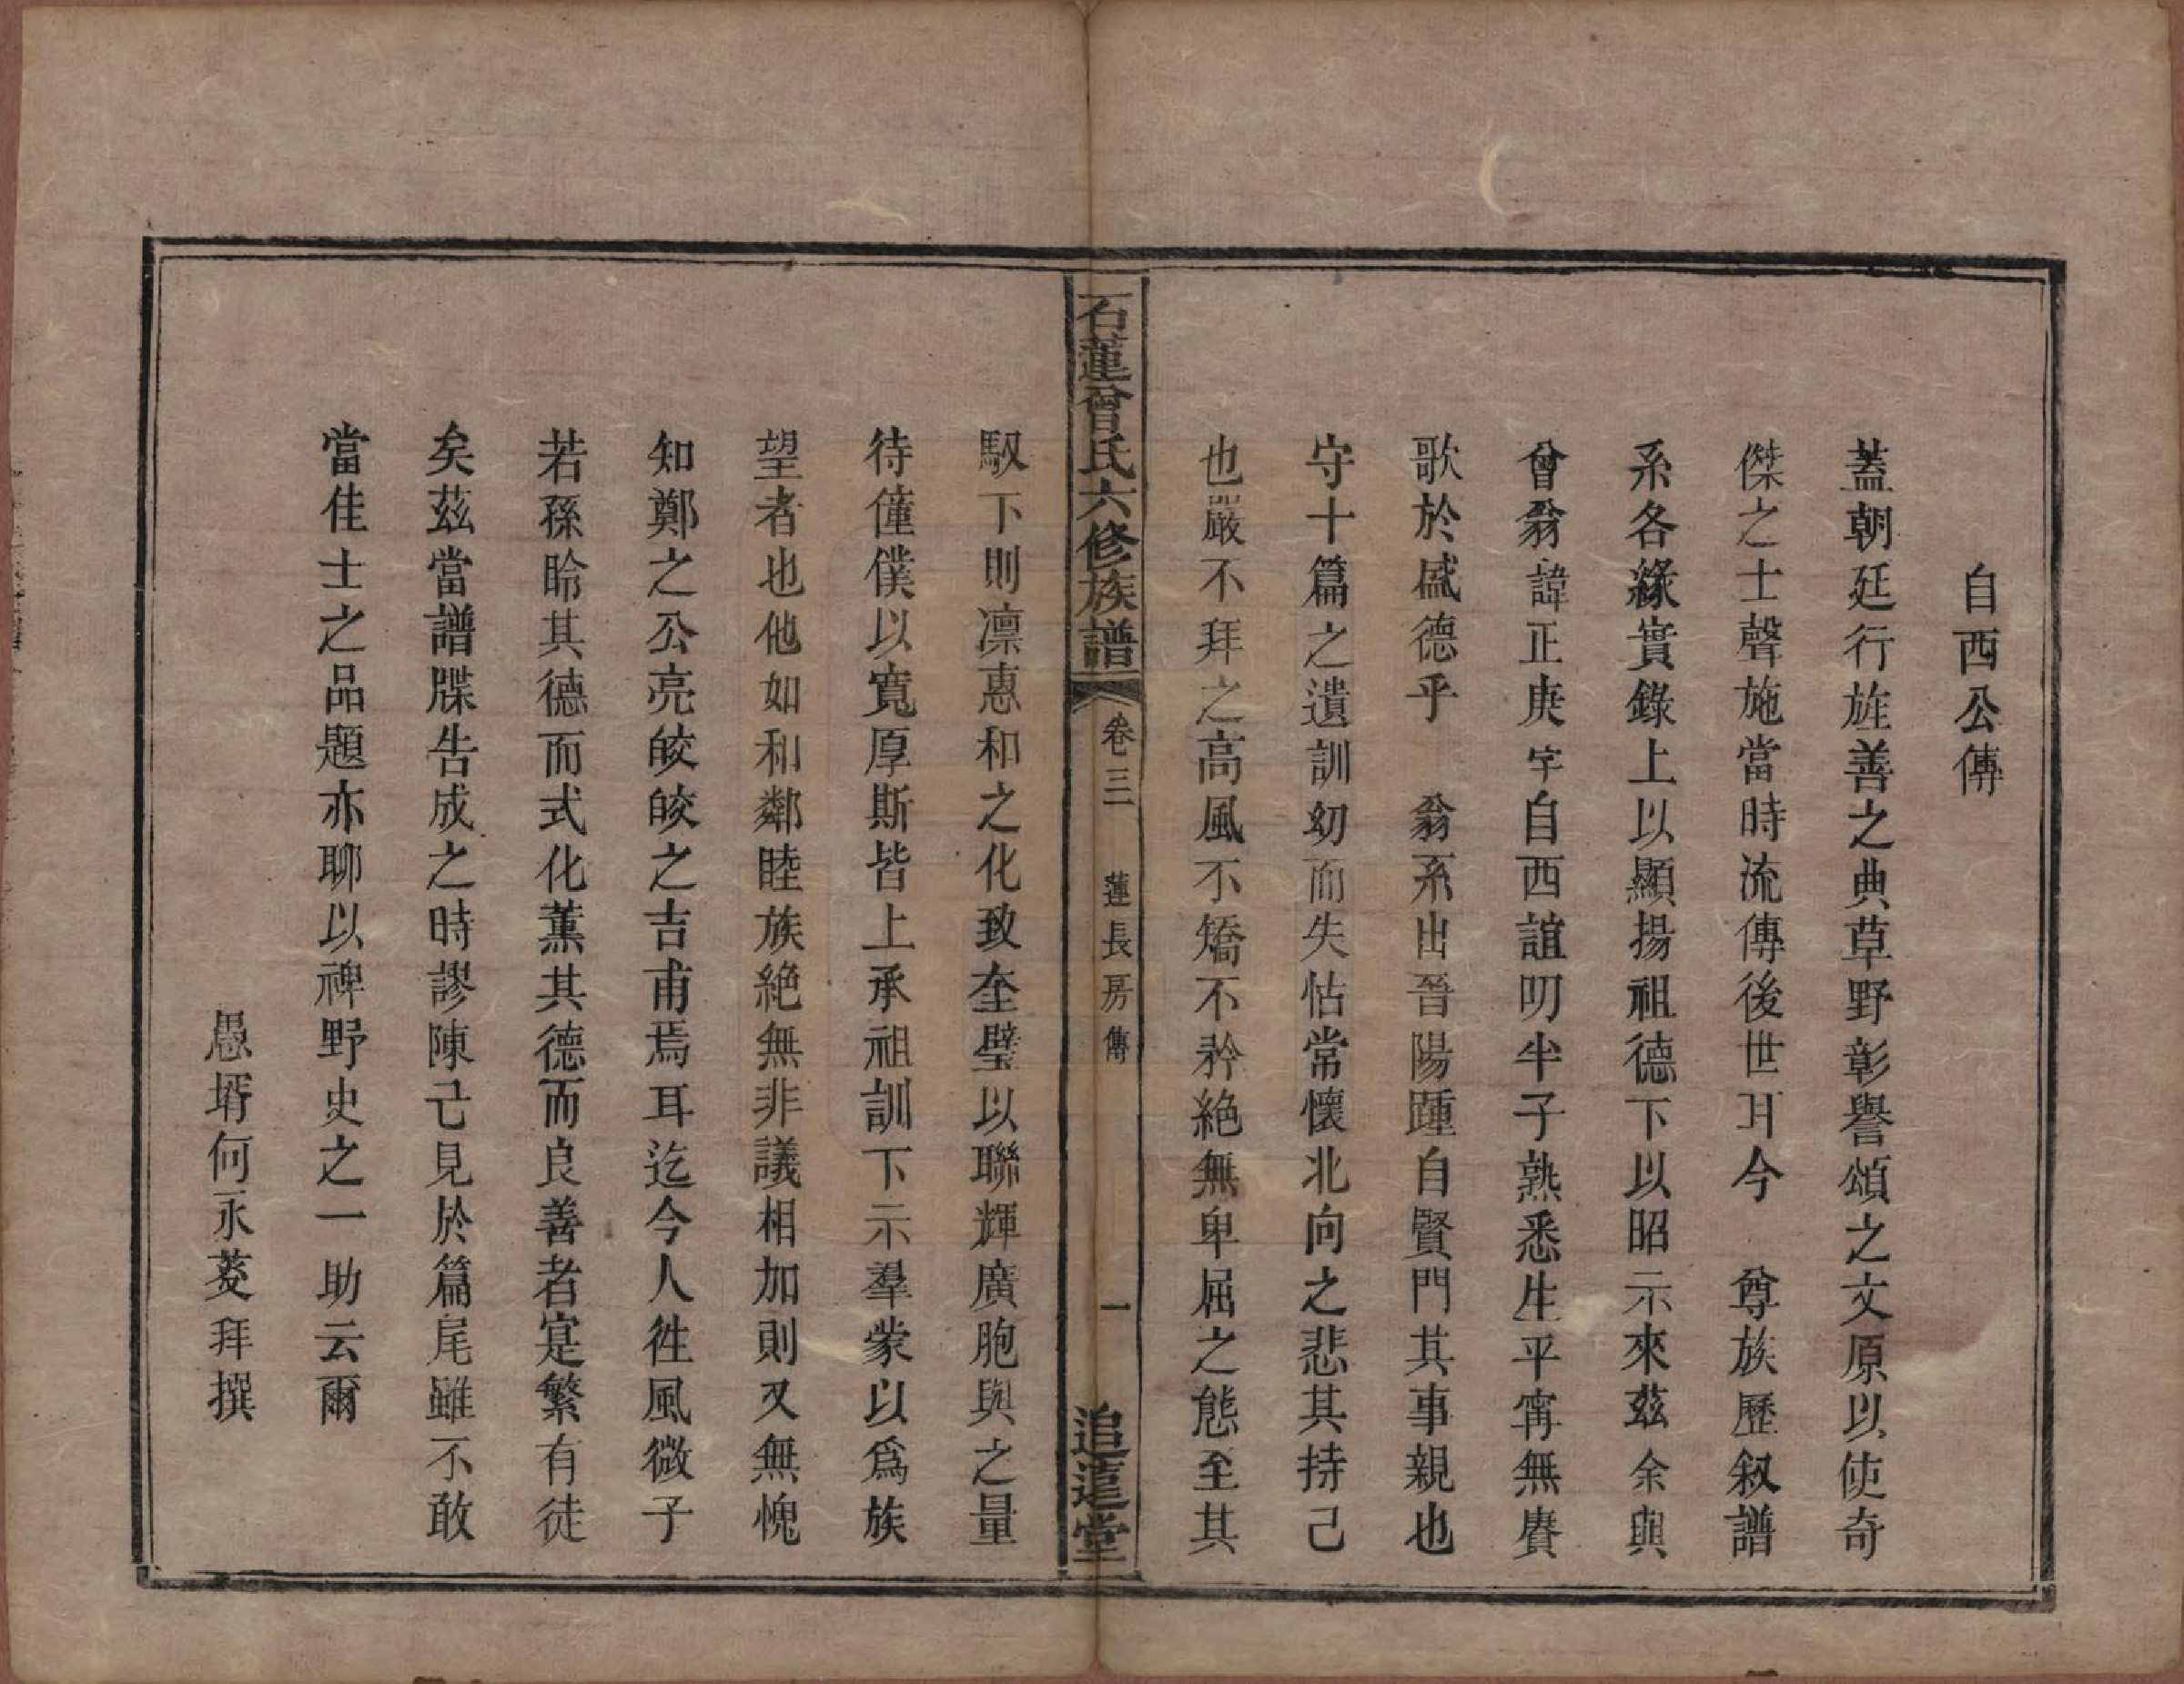 自西公傳
蓋朝廷行旌善之典草野彰譽頌之文原以使奇
傑之士聲施當時流傳後世耳今　尊族歷叙譜
系各緣實錄上以顯揚祖德下以昭示來茲余與
曾翁諱正庚字自西誼叨半子熟悉生平甯無賡
歌於盛德乎　翁系出晉陽踵自賢門其事親也
守十篇之遺訓幼而失怙常懷北向之悲其持己
也嚴不拜之高風不矯不矜絕無卑屈之態至其
石蓮曾氏六修族譜　卷三　蓮長房傳　一　追遠堂
馭下則凛惠和之化致奎璧以聯輝廣胞與之量
待僮僕以寬厚斯皆上承祖訓下示羣蒙以爲族
望者也他如和鄰睦族絕無非議相加則又無愧
知鄭之公亮皎皎之吉甫焉耳迄今人徃風微子
若孫聆其德而式化薰其德而良善者寔繁有徒
矣茲當譜牒告成之時謬陳己見於篇尾雖不敢
當佳士之品題亦聊以裨野史之一助云爾
愚壻何永菱拜撰